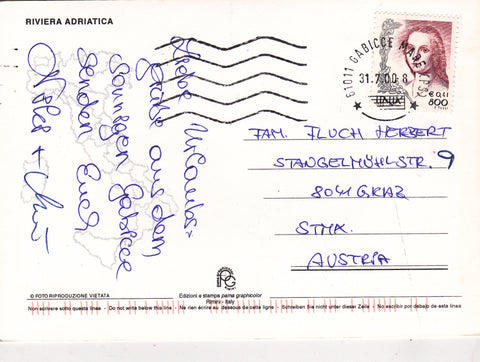 RIVIERA ADRIATICA
Liebe Urlaubs-
grüße aus dem
sonnigen Gabicce
senden Euch
61011 GABICCE MARE
31.7.00-8
ITALIA
€ 0,41
800
FAM. FLUCH HERBERT
STANGELMÜHLSTR. 9
8041 GRAZ
STMK.
AUSTRIA
© FOTO RIPRODUZIONE VIETATA
Edizioni e stampa pama graphicolor
Rimini - Italy
Non scrivere sotto questa linea - Do not write below this line - Ne rien écrire au dessous de cette ligne - Schreiben Sie nicht unter dieser Zeile - No escribir por debajo de esta linea